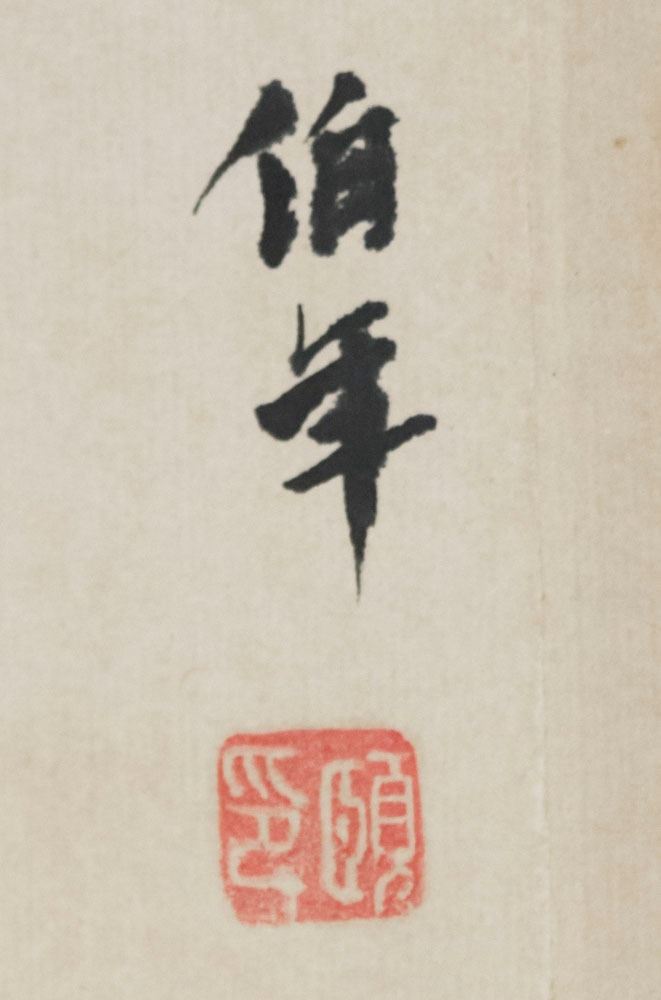 伯年
頤印